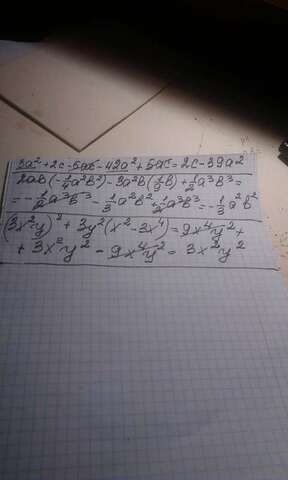 3a² + 2c - 5ac - 42a² + 5ac = 2c - 39a²
2ab(-1/4a²b²) - 3a²b(1/9b) + 1/2a³b³ =
= -1/2a³b³ - 1/3a²b² + 1/2a³b³ = -1/3a²b²
(3x²y)² + 3y²(x² - 3x⁴) = 9x⁴y² +
+ 3x²y² - 9x⁴y² = 3x²y²